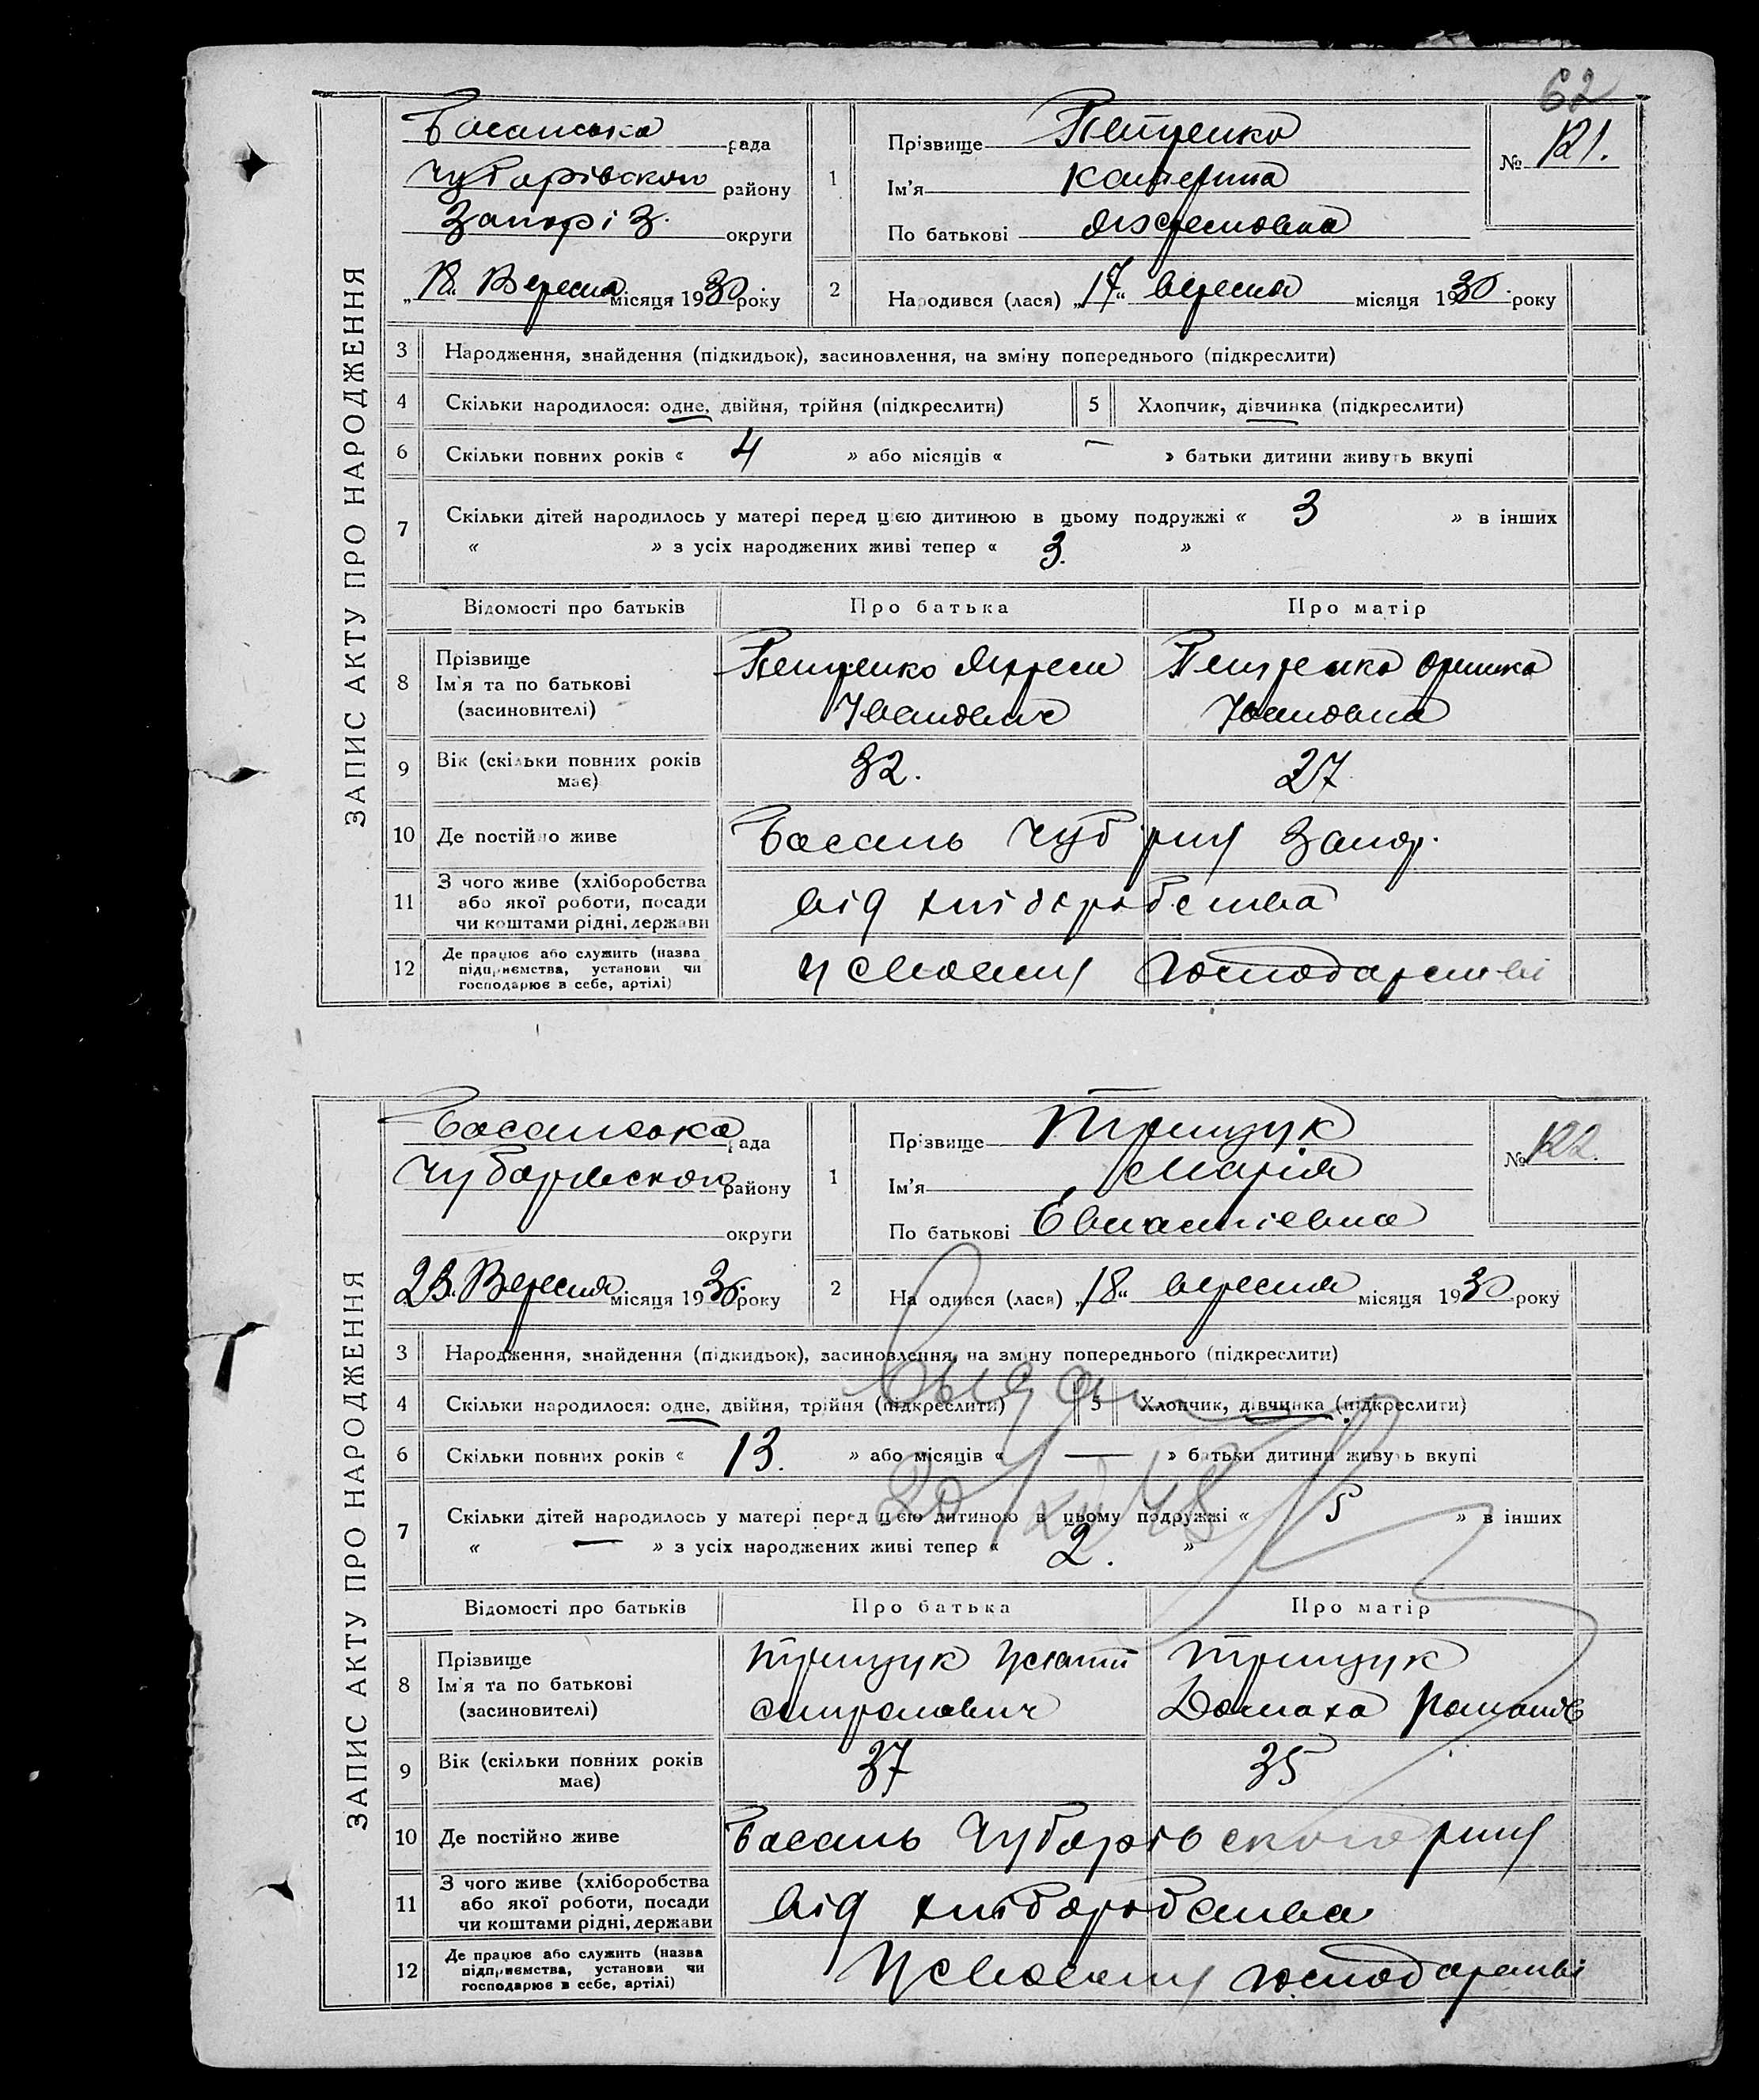 62
ЗАПИС АКТУ ПРО НАРОДЖЕННЯ
Басанська рада
Чубарівского району
Запоріз. округи
„18“ Вересня місяця 1930 року
1
Прізвище Петренко
Ім'я Катерина
По батькові
№ 121.
2
Народився (лася) „17“ вересня місяця 1930 року
3 Народження, знайдення (підкидьок), засиновлення, на зміну попереднього (підкреслити)
4 Скільки народилося: одне, двійня, трійня (підкреслити) 5 Хлопчик, дівчинка (підкреслити)
6 Скільки повних років « 4 » або місяців « — » батьки дитини живуть вкупі
7 Скільки дітей народилось у матері перед цією дитиною в цьому подружжі « 3 » в інших
« » з усіх народжених живі тепер « 3. »
Відомості про батьків Про батька Про матір
8 Прізвище
Ім'я та по батькові
(засиновителі)
Петренко
Іванович
Петренко Оришка
Івановна
9 Вік (скільки повних років
має)
32. 27
10 Де постійно живе Басань Чуб рну Запор.
11 З чого живе (хліборобства
або якої роботи, посади
чи коштами рідні, держави
від хліборобства
12 Де працює або служить (назва
підприємства, установи чи
господарює в себе, артілі)
у своему господарстві
ЗАПИС АКТУ ПРО НАРОДЖЕННЯ
Басанська рада
району
округи
23. Вересня місяця 1930 року
1
Прізвище Трищук
Ім'я Марія
По батькові
№ 122.
2
Народився (лася) „18“ вересня місяця 1930 року
3 Народження, знайдення (підкидьок), засиновлення, на зміну попереднього (підкреслити)
4 Скільки народилося: одне, двійня, трійня (підкреслити) 5 Хлопчик, дівчинка (підкреслити)
6 Скільки повних років « 13. » або місяців « — » батьки дитини живуть вкупі
7 Скільки дітей народилось у матері перед цією дитиною в цьому подружжі « 5 » в інших
« — » з усіх народжених живі тепер « 2. »
Відомості про батьків Про батька Про матір
8 Прізвище
Ім'я та по батькові
(засиновителі)
Трищук
Трищук
Домаха Романов
9 Вік (скільки повних років
має)
37 35
10 Де постійно живе Басань Чубарівского рну
11 З чого живе (хліборобства
або якої роботи, посади
чи коштами рідні, держави
від хліборобства
12 Де працює або служить (назва
підприємства, установи чи
господарює в себе, артілі)
У своему господарстві